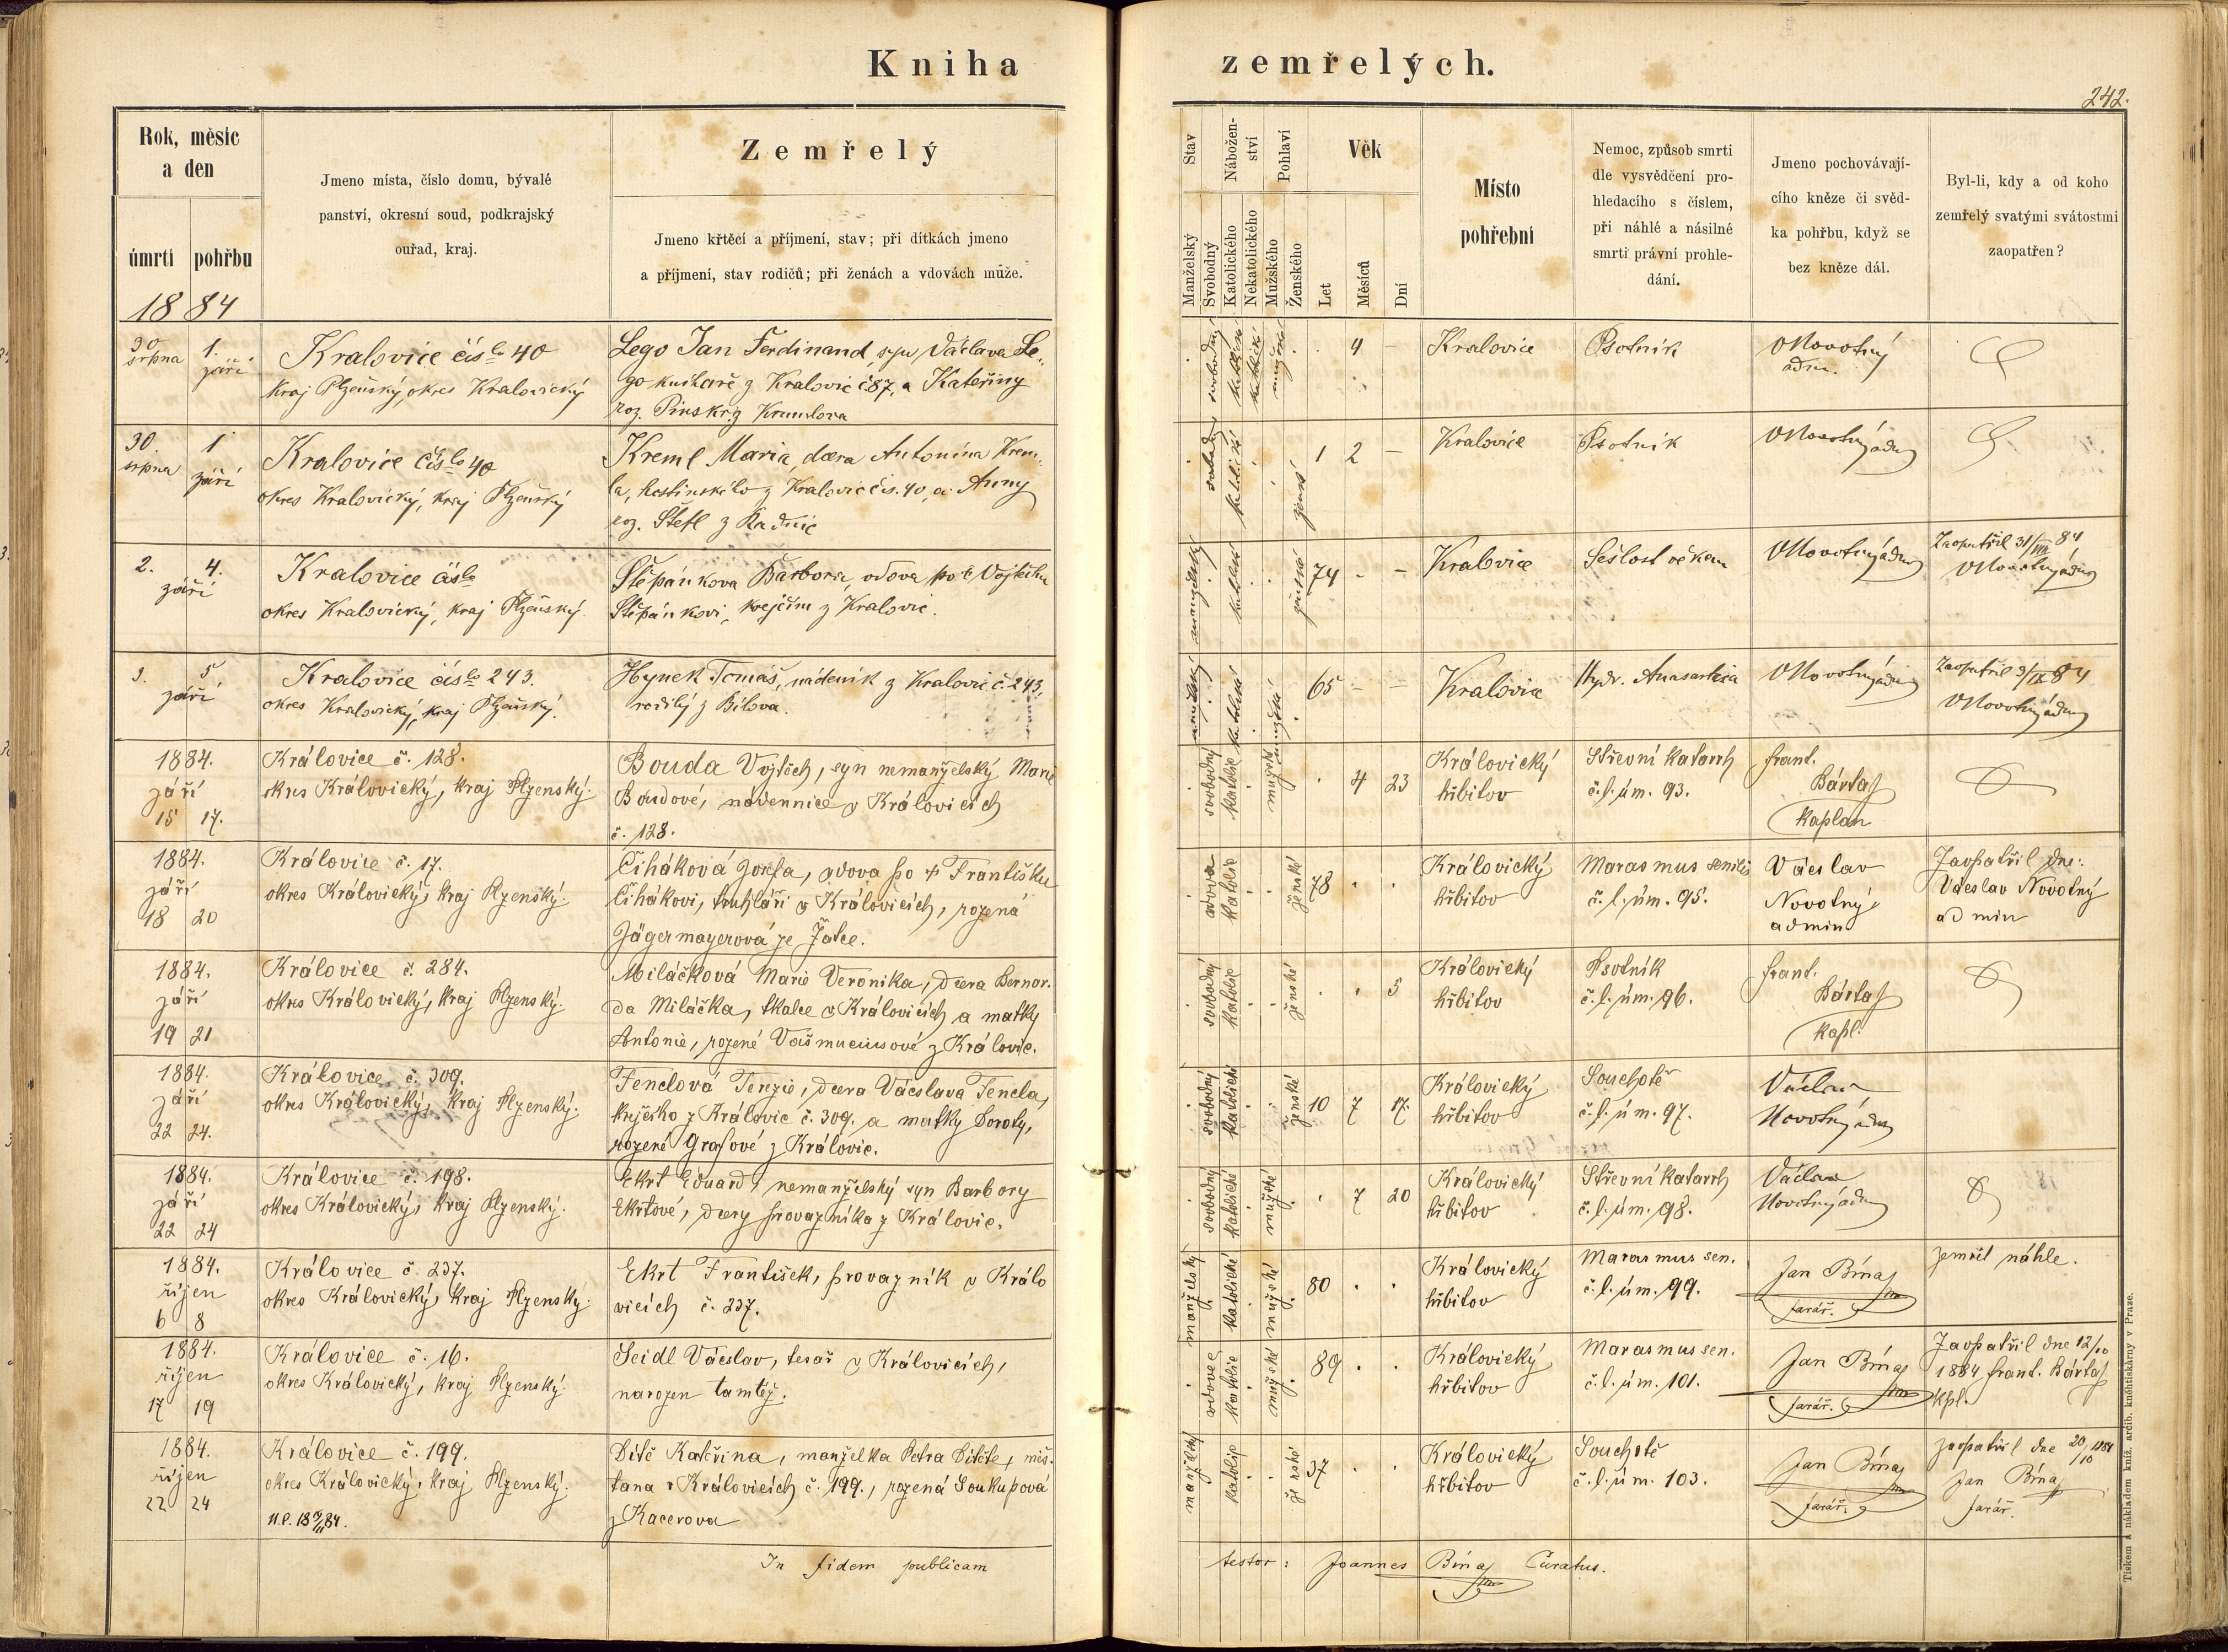 Kniha zemřelých.
242.
Rok, měsíc
a den
úmrtí pohřbu
1884
Jmeno místa, číslo domu, bývalé
panství, okresní soud, podkrajský
ouřad, kraj.
Zemřelý
Jmeno křtěcí a příjmení, stav; při dítkách jmeno
a příjmení, stav rodičů; při ženách a vdovách může.
Stav
Manželský
Svobodný
Nábožen-
ství
Katolického
Nekatolického
Pohlaví
Mužského
Ženského
Věk
Let
Měsíců
Dní
Místo
pohřební
Nemoc, způsob smrti
dle vysvědčení pro-
hledacího s číslem,
při náhlé a násilné
smrti právní prohle-
dání.
Jmeno pochovávají-
cího kněze či svěd-
ka pohřbu, když se
bez kněze dál.
Byl-li, kdy a od koho
zemřelý svatými svátostmi
zaopatřen?
30 srpna 1. září
Kralovice číslo 40
Kraj Plzeňský, okres Kralovický
Lego Jan Ferdinand, syn Václava Le-
go kuchaře z Kralovic č 87, a Kateřiny
roz. Pinsk z Krumlova
svobodný
mužské
4 –
Kralovice
Psotník
VNovotný
adm.
30. srpna 1 září
Kralovice číslo 40
okres Kralovický, kraj Plzeňský
Kreml Maria, dcera Antonína Krem-
la, hostinského z Kralovic čís. 40, a Anny
roz. Štefl z Radnic
svobodný
katolické
ženské
1 2 –
Kralovice
Psotník
VNovotný adm
2. 4. září
Kralovice číslo
okres Kralovický, kraj Plzeňský
Štěpánkova Barbora, vdova po Vojtěchu
Štěpánkovi, krejčím z Kralovic.
manželský
ženské
74 - -
Kralovice
Sešlost věkem
VNovotný adm
Zaopatřil 31/VIII 84
VNovotný adm
3. 5 září
Kralovice číslo 243.
okres Kralovický, kraj Plzeňský.
Hynek Tomáš, nádeník z Kralovic č. 243,
rodilý z Bílova.
mužské
65 - -
Kralovice
Hydr. Anasartica
VNovotný adm
Zaopatřil 3/IX 84
VNovotný adm
1884.
září
15 17.
Královice č. 128.
okres Královický, kraj Plzenský.
Bouda Vojtěch, syn nemanželský Marie
Boudové, nádennice v Královicích
č. 128.
svobodný
katolic
mužské
. 4 23
Královický
hřbitov
Střevní katarrh
č. l. úm. 93.
frant.
Bárta
Kaplan
1884.
září
18 20
Královice č. 17.
okres Královický, kraj Plzenský.
Čiháková Josefa, vdova po † Františku
Čihákovi, truhláři v Královicích, rozená
Jägermayerová ze Žatce.
vdova
katolic
ženské
78 . .
Královický
hřbitov
Marasmus senilis
č. l. úm. 95.
Václav
Novotný
admin
Zaopatřil dne:
Václav Novotný
admin
1884.
září
19 21
Královice č. 284.
okres Královický, kraj Plzenský.
Miláčková Marie Veronika, dcera Bernar-
da Miláčka, tkalce v Královicích a matky
Antonie, rozené Vaišmucusové z Královic.
svobodný
katolic
ženské
. . 5
Královický
hřbitov
Psotník
č. l. úm. 96.
frant.
Bárta
kapl.
1884.
září
22 24.
Královice č. 309.
okres Královický, kraj Plzenský.
Fenclová Terezie, dcera Václava Fencla,
krejčího z Královic č. 309. a matky Doroty,
rozené Grafové z Královic.
svobodný
katolické
ženské
10 7 17.
Královický
hřbitov
Souchotě
č. l. úm. 97.
Václav
Novotný adm
1884.
září
22 24
Královice č. 198.
okres Královický, kraj Plzenský.
Ekrt Eduard, nemanželský syn Barbory
Ekrtové, dcery provazníka z Královic.
svobodný
katolické
mužské
. 7 20
Královický
hřbitov
Střevní katarrh
č. l. úm. 98.
Václav
Novotný adm
1884.
říjen
6 8
Královice č. 237.
okres Královický, kraj Plzenský.
Ekrt František, provazník v Králo
vicích č. 237.
manželský
katolické
mužské
80 . .
Královický
hřbitov
Marasmus sen.
č. l. úm. 99.
Jan Bína
farář.
zemřel náhle.
1884.
říjen
17 19
Královice č. 16.
okres Královický, kraj Plzenský.
Seidl Václav, tesař v Královicích,
narozen tamtéž.
vdovec
katolic
mužské
89 . .
Královický
hřbitov
Marasmus sen.
č. l. úm. 101.
Jan Bína
farář.
Zaopatřil dne 12/10
1884 frant. Bárta
kpl.
1884.
říjen
22 24
Královice č. 199.
okres Královický, kraj Plzenský.
Dítě Kateřina, manželka Petra Dítěte, měš-
tana v Královicích č. 199., rozená Soukupová
z Kacerova
manželský
katolic
ženské
37 . .
Královický
hřbitov
Souchotě
č. l. úm. 103.
Jan Bína
farář.
zaopatřil dne 20/10 1884
Jan Bína
farář.
In fidem publicam testor: Joannes Bína Curatus.
Tiskem a nákladem kníž. arcib. kněhtiskárny v Praze.